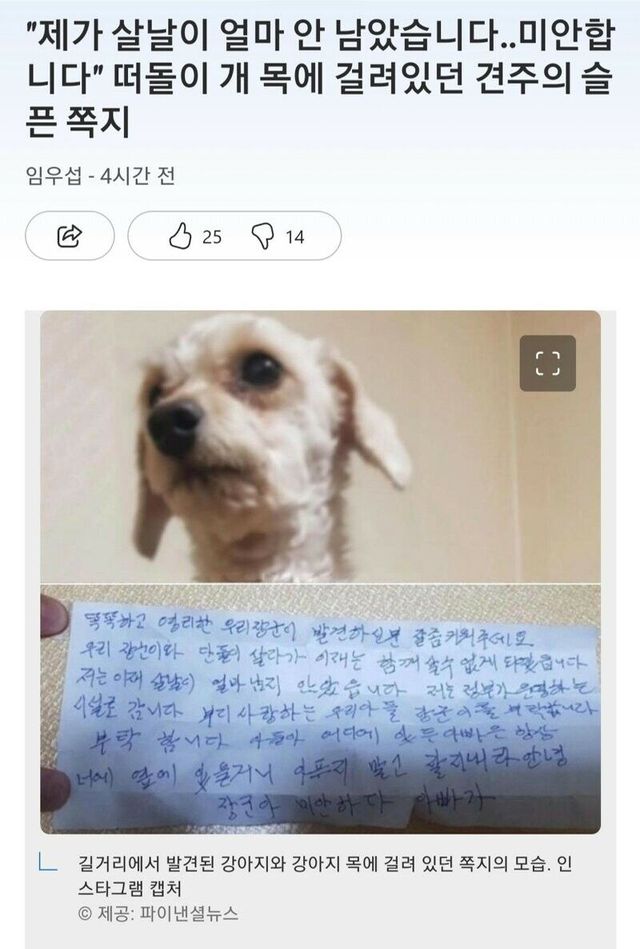 "제가 살날이 얼마 안 남았습니다..미안합
니다" 떠돌이 개 목에 걸려있던 견주의 슬
픈 쪽지
임우섭 - 4시간 전
25 14
똑똑하고 영리한 우리장군이 발견하신분 잘좀키워주세요
우리 장군이와 단둘이 살다가 이제는 함께 살수 없게 되었습니다
저는 이제 살날이 얼마 남지 않았습니다 저는 정부가 운영하는
시설로 갑니다 부디 사랑하는 우리아들 장군이를 부탁합니다
부탁 합니다 아들아 어디에 있든 아빠은 항상
너에 옆에 있을거니 아프지 말고 잘지내라 안녕
장군아 미안하다 아빠가
길거리에서 발견된 강아지와 강아지 목에 걸려 있던 쪽지의 모습. 인
스타그램 캡처
© 제공: 파이낸셜뉴스